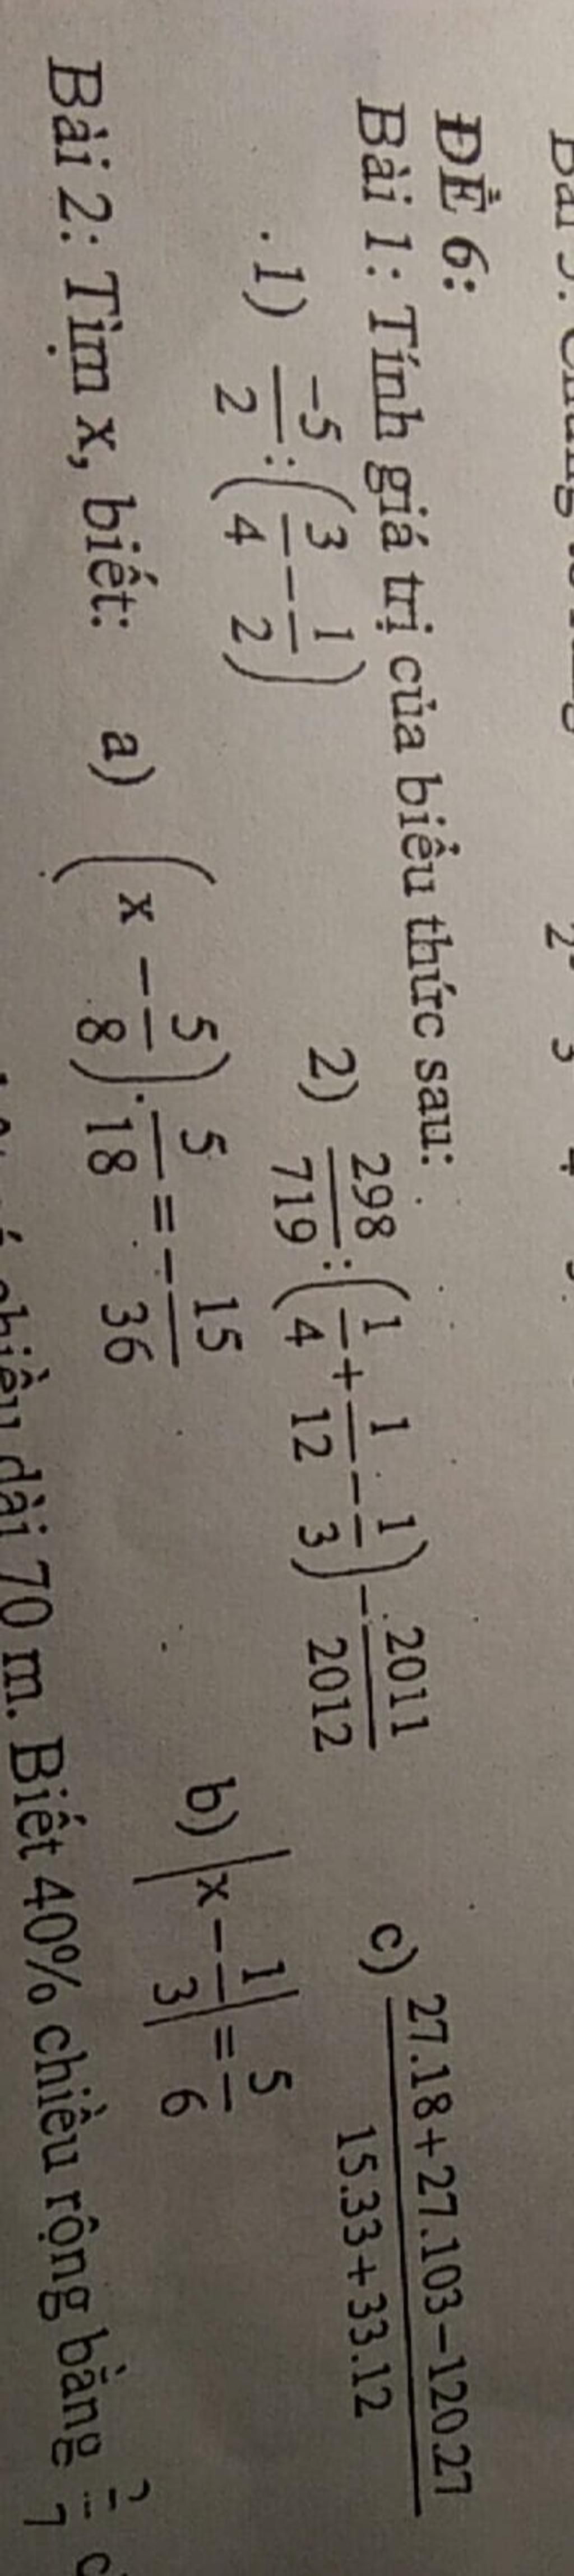 ĐỀ 6:
Bài 1: Tính giá trị của biểu thức sau:
1) -5/2 : (3/4 - 1/2) 2) 298/719 : (1/4 + 1/12 - 1/3) - 2011/2012 c) (27.18+27.103-120.27)/(15.33+33.12)
Bài 2: Tìm x, biết: a) (x - 5/8) . 5/18 = - 15/36 b) |x - 1/3| = 5/6
chiều dài 70 m. Biết 40% chiều rộng bằng